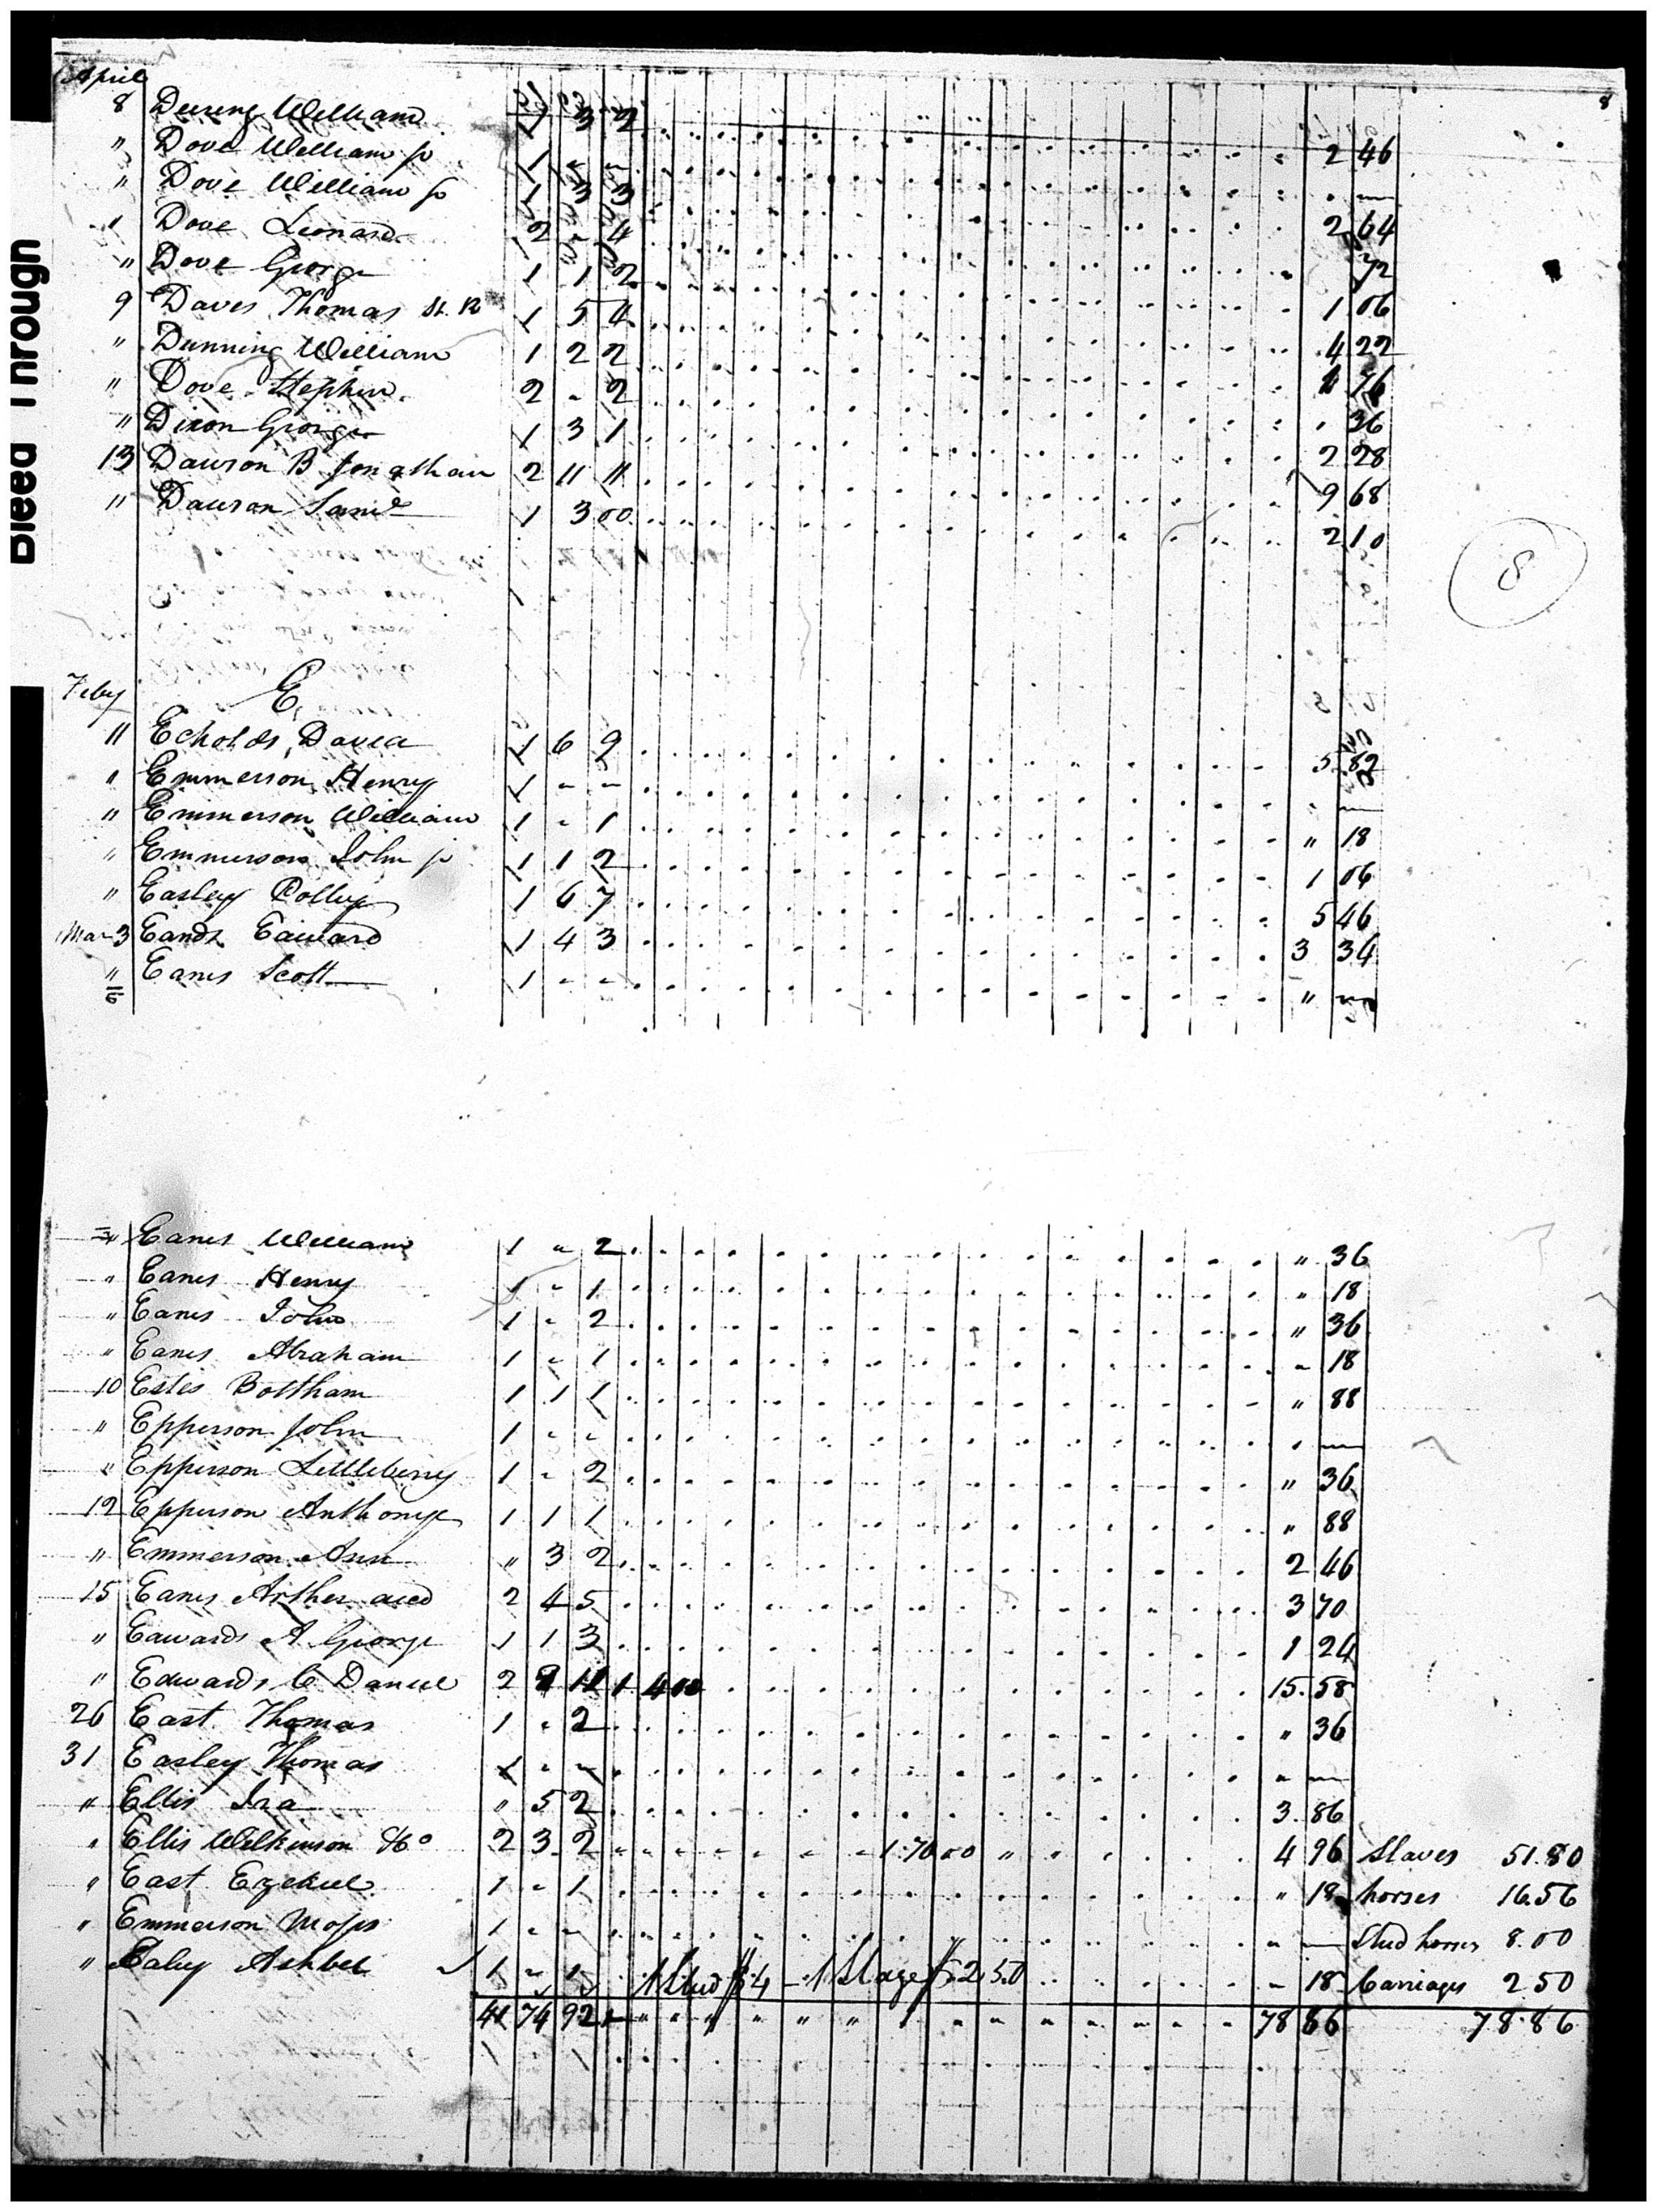 April 8
8 Deering William 1 3 2 2 46
" Dove William jr 1 - - . —
" Dove William jr 1 3 3 2 64
" Dove Leonard 2 - 4 72
" Dove George 1 1 2 1 06
9 Daves Thomas 1 5 4 4 22
" Dunning William 1 2 2 1 76
" Dove Stephen 2 - 2 . 36
" Dixon George 1 3 1 2 28
13 Dawson B Jonathan 2 11 11 9 68
" Dawson Saml 1 3 00 2 10
8
Feby E
11 Echolds, David 1 6 9 5 82
" Emmerson Henry 1 - - . —
" Emmerson William 1 - 1 " 18
" Emmerson John jr 1 1 2 1 06
" Easley Polly 1 6 7 5 46
Mar 3 Eands Edward 1 4 3 3 34
" Eanes Scott 1 - - " —
6
" Eanes William 1 - 2 " 36
" Eanes Henry 1 - 1 " 18
" Eanes John 1 - 2 " 36
" Eanes Abraham 1 - 1 - 18
10 Estes Bottham 1 1 1 " 88
" Epperson John 1 - - . —
" Epperson Littleberry 1 - 2 " 36
12 Epperson Anthony 1 1 1 " 88
" Emmerson Ann " 3 2 2 46
15 Eanes Arther 2 4 5 3 70
" Edwards A George 1 1 3 1 24
" Edwards C Daniel 2 9 11 1 4 00 15.58
26 East Thomas 1 - 2 " 36
31 Easley Thomas 1 - - - —
" Ellis Ira " 5 2 3.86
" Ellis Wilkinson & Co 2 3 2 1 70 00 4 96 Slaves 51.80
" East Ezekiel 1 - 1 " 18 horses 16.56
" Emmerson Moses 1 - - - — Stud horses 8.00
" Ealey Ashbel 1 - 1 1 Stud $4 - 1 Stage $2.50 - 18 Carriages 2 50
41 74 92 78 86 78.86
Bleed Through